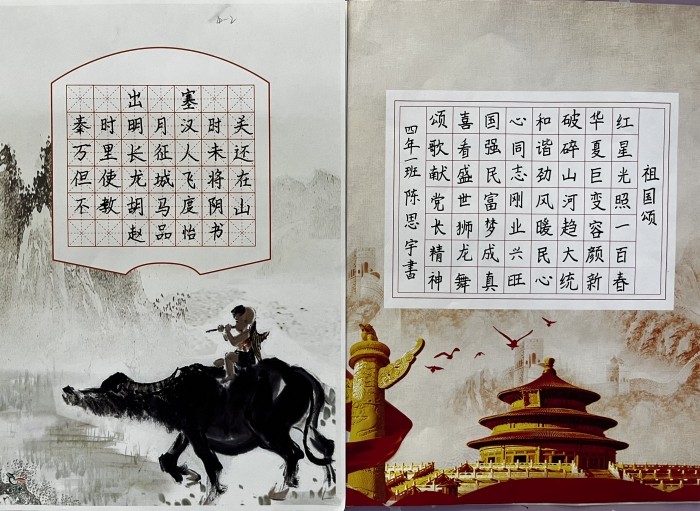 出塞
秦时明月汉时关
万里长征人未还
但使龙城飞将在
不教胡马度阴山
赵品怡书
祖国颂
红星光照一百春
华夏巨变容颜新
破碎山河趋大统
和谐劲风暖民心
心同志刚业兴旺
国强民富梦成真
喜看盛世狮龙舞
颂歌献党长精神
四年一班 陈思宇書